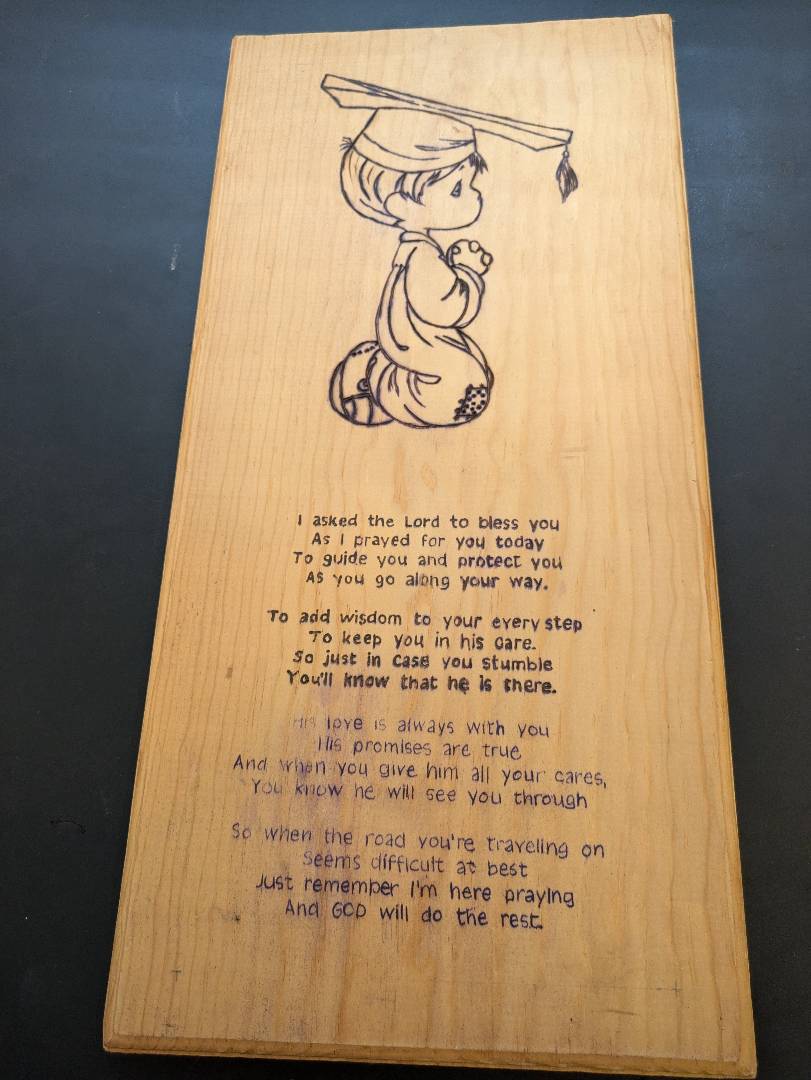 I asked the Lord to bless you
As I prayed for you today
To guide you and protect you
As you go along your way.
To add wisdom to your every step
To keep you in his care.
So just in case you stumble
You'll know that he is there.
His love is always with you
His promises are true
And when you give him all your cares,
You know he will see you through
So when the road you're traveling on
Seems difficult at best
Just remember I'm here praying
And GOD will do the rest.